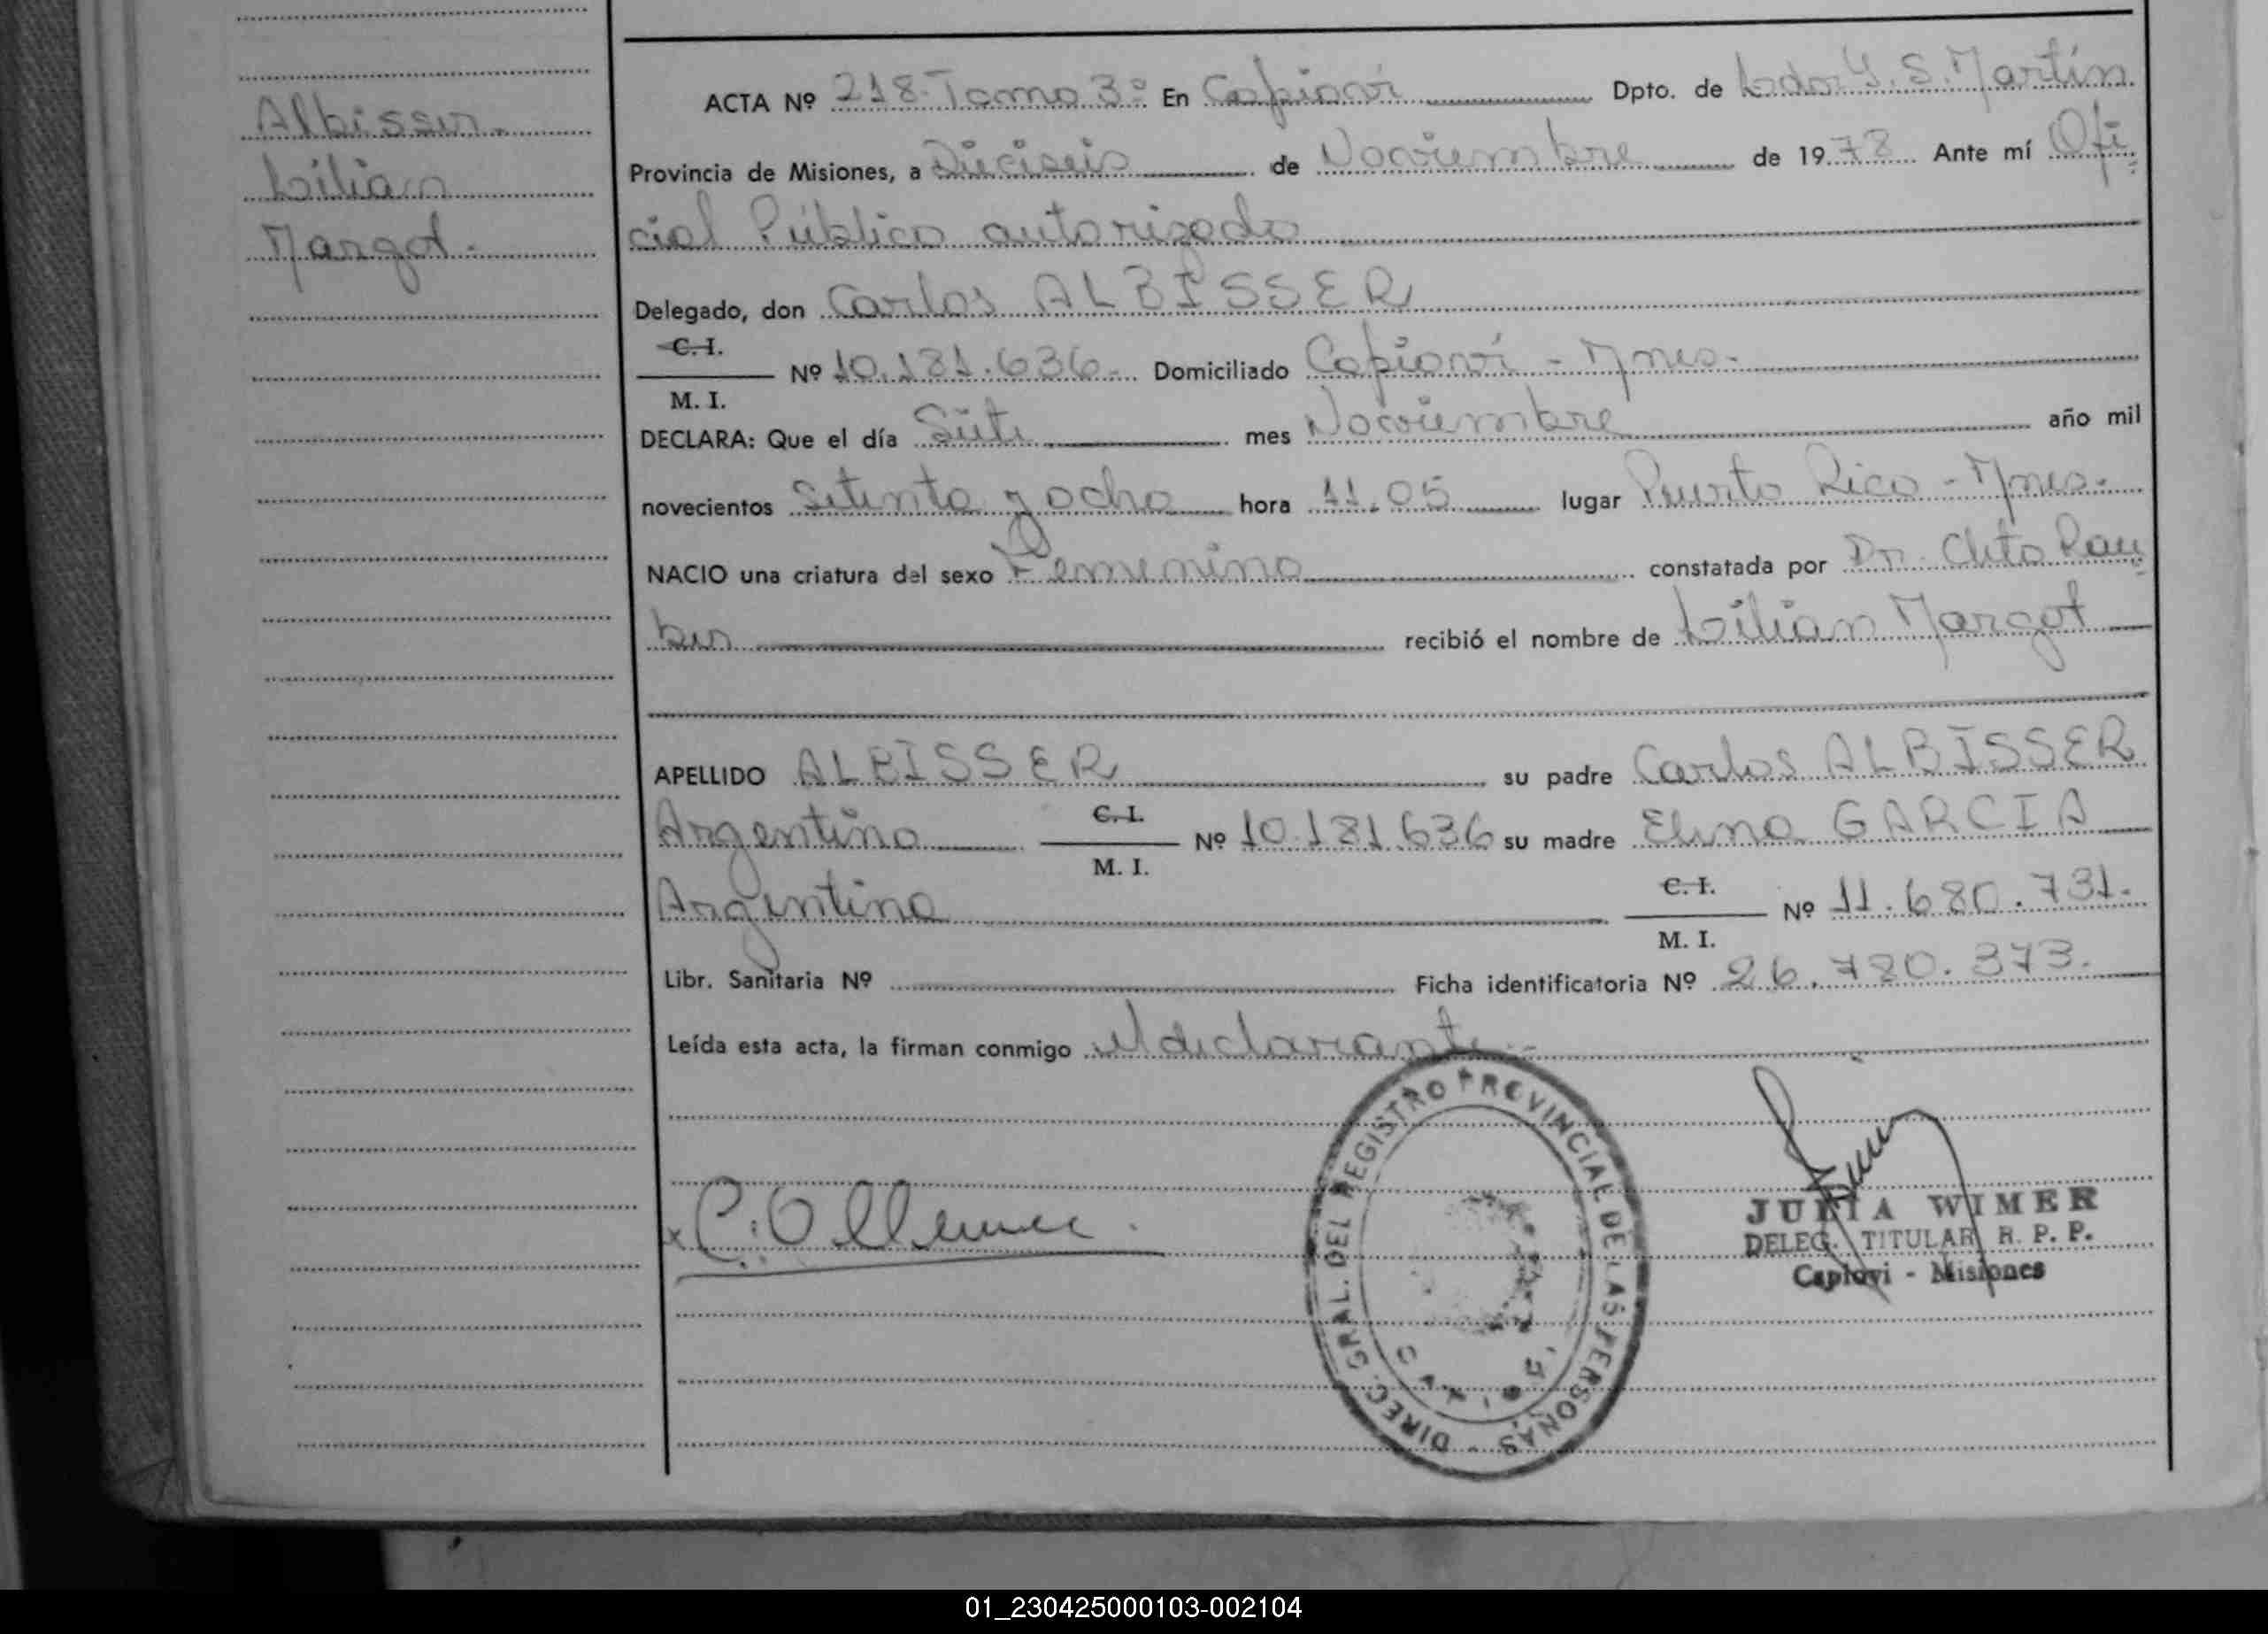 Albisser.
Lilian
Margot.
ACTA Nº 218-Tomo 3º En Capioví Dpto. de Ldor G. S. Martín
Provincia de Misiones, a Dieciseis de Noviembre de 1978 Ante mí Ofi
cial Público autorizado
Delegado, don Carlos ALBISSER
C. I.
Nº 10.181.636 Domiciliado Capioví - Mnes.
M. I.
DECLARA: Que el día Siete mes Noviembre año mil
novecientos setenta y ocho hora 11,05 lugar Puerto Rico - Mnes.
NACIO una criatura del sexo Femenino constatada por Dr. Cleto Rau
ber recibió el nombre de Lilian Margot
APELLIDO ALBISSER su padre Carlos ALBISSER
Argentino C. I. Nº 10.181.636 su madre Elena GARCIA
M. I.
Argentina C. I. Nº 11.680.731.
M. I.
Libr. Sanitaria Nº Ficha identificatoria Nº 26.780.373.
Leída esta acta, la firman conmigo el declarante.-
DIREC. GRAL. DEL REGISTRO PROVINCIAL DE LAS PERSONAS
JULIA WIMER
DELEG. TITULAR R. P. P.
Capioví - Misiones
01_230425000103-002104